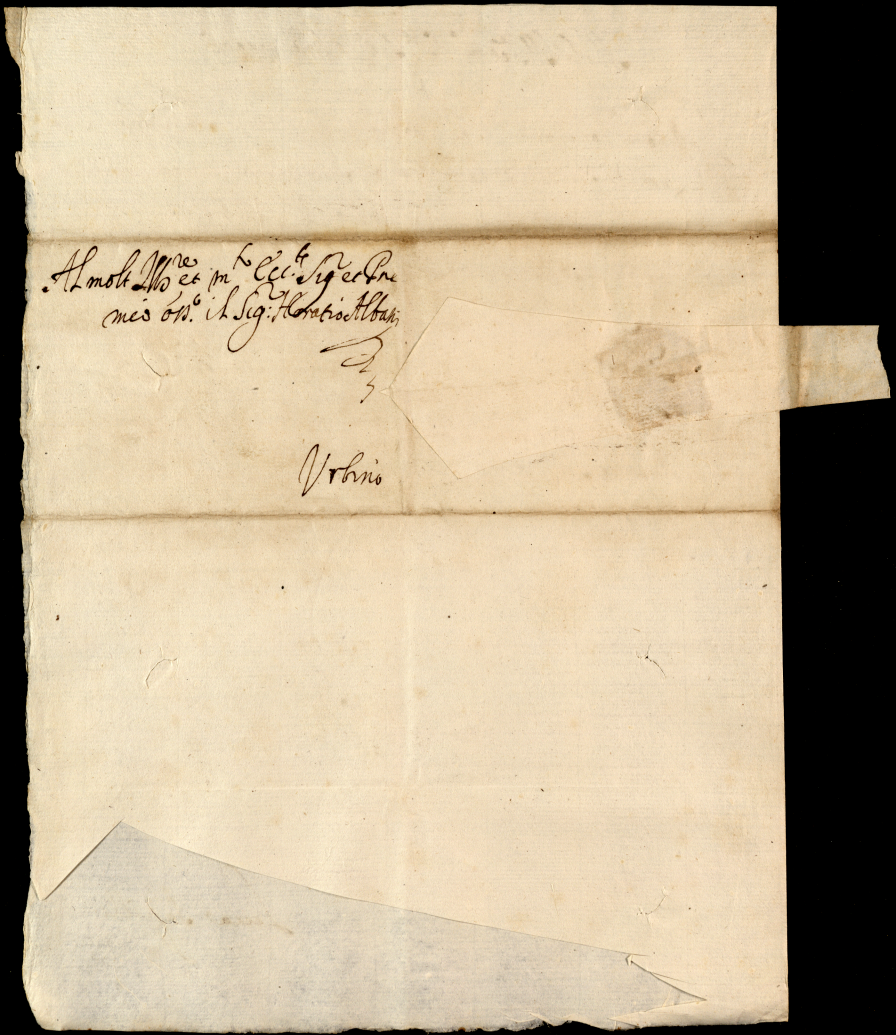 Al molt Ill.re et m.to Ecc.te Sig.r et Pne
mio oss.o il Sig.r Horatio Albani
Urbino